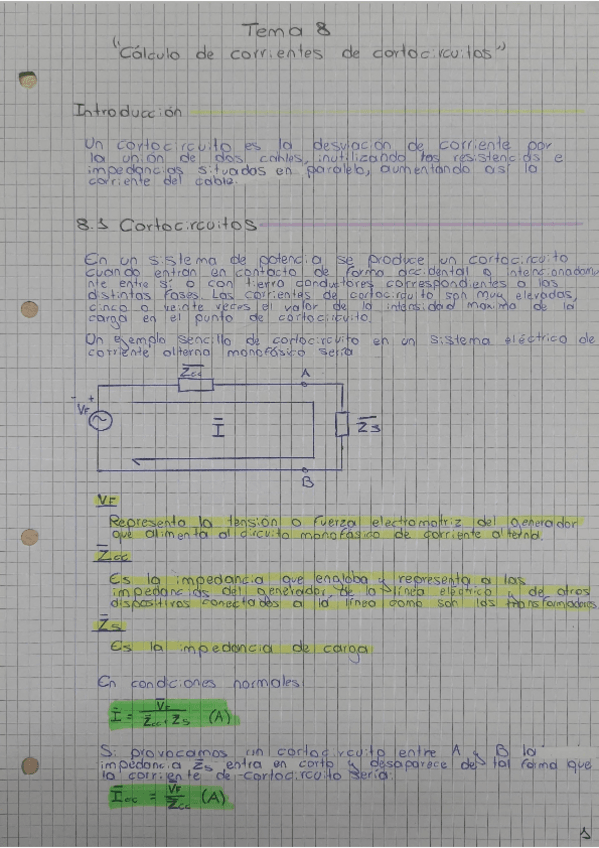 Tema 8
"Cálculo de corrientes de cortocircuitos"
Introducción
Un cortocircuito es la desviación de corriente por
la unión de dos cables, inutilizando las resistencias e
impedancias situados en paralelo, aumentando así la
corriente del cable.
8.1 Cortocircuitos
En un sistema de potencia se produce un cortocircuito
cuando entran en contacto de forma accidental o intencionadame
nte entre si o con tierra conductores correspondientes a las
distintas fases. Las corrientes de cortocircuito son muy elevadas,
cinco o veinte veces el valor de la intensidad maxima de la
carga en el punto de cortocircuito.
Un ejemplo sencillo de cortocircuito en un sistema eléctrico de
corriente alterna monofásico sería
Zcc
A
- +
VF
I
Zs
B
VF
Representa la tensión o fuerza electromotriz del generador
que alimenta al circuito monofásico de corriente alterna.
Zcc
Es la impedancia que engloba y representa a las
impedancias del generador, de la línea eléctrica y de otros
dispositivos conectados a la línea como son los transformadores
Zs
Es la impedancia de carga
En condiciones normales
I = VF / Zcc + Zs (A)
Si provocamos un cortocircuito entre A y B la
impedancia Zs entra en corto y desaparece de tal forma que
la corriente de cortocircuito sería:
Icc = VF / Zcc (A)
1